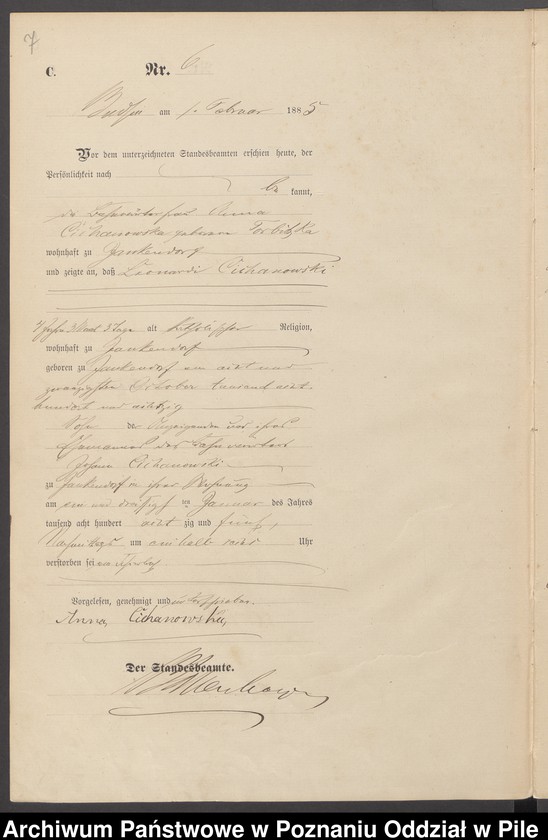 7
C. Nr. 6
Budsin am 1. Februar 1885
Vor dem unterzeichneten Standesbeamten erschien heute, der
Persönlichkeit nach
be kannt,
die Anna
Cichanowska geborene
wohnhaft zu Jankendorf
und zeigte an, daß Leonardi Cichanowski
4 Jahre 3 Mon. 3 Tage alt katholischer Religion,
wohnhaft zu Jankendorf
geboren zu Jankendorf am acht und
zwanzigsten October tausend acht
hundert und achtzig
Sohn der Anzeigenden und ihres
Ehemannes des
Johann Cichanowski
zu Jankendorf in ihrer Wohnung
am ein und dreißigsten Januar des Jahres
tausend acht hundert acht zig und fünf,
Vormittags um ein halb Uhr
verstorben sei
Vorgelesen, genehmigt und unterschrieben.
Anna Cichanowska
Der Standesbeamte.
Archiwum Państwowe w Poznaniu Oddział w Pile